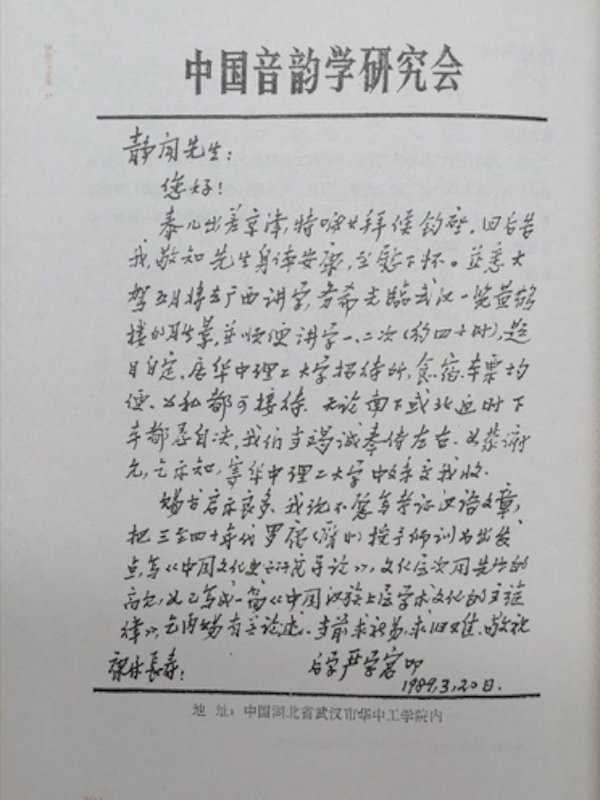 中国音韵学研究会
静闻先生：
您好！
泰儿出差京津，特嘱其拜候钧座，回后告
我，敬知先生身体安康，至慰下怀。并悉大
驾五月将去广西讲学，务希光临武汉一览黄鹤
楼的胜景，并顺便讲学一、二次（约四小时），题
目自定，居华中理工大学招待所，食宿、车票均
便，公私都可接待。无论南下或北返时下
车都悉自决，我们当竭诚奉侍左右。如蒙谢
允，乞示知，寄华中理工大学中文系交我收。
赐书启示良多，我说不愿写考证汉语文章，
把三至四十年代罗 授予师训为出发
点，写《中国文化史研究导论》，文化层次用先生的
高见，现已写成一篇《中国汉族上层学术文化的主旋
律》，乞内赐有立论述。当前求新易，求旧难。敬祝
康休長寿！ 后学严学宭叩
1989，3，20日.
地 址：中国湖北省武汉市华中工学院内